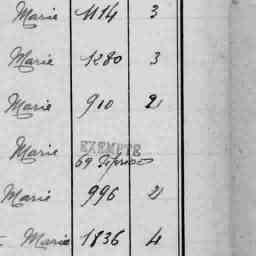 Marie 1114 3
Marie 1280 3
Marie 910 2
EXEMPTE
Marie 69
Marie 996 2
Marie 1836 4